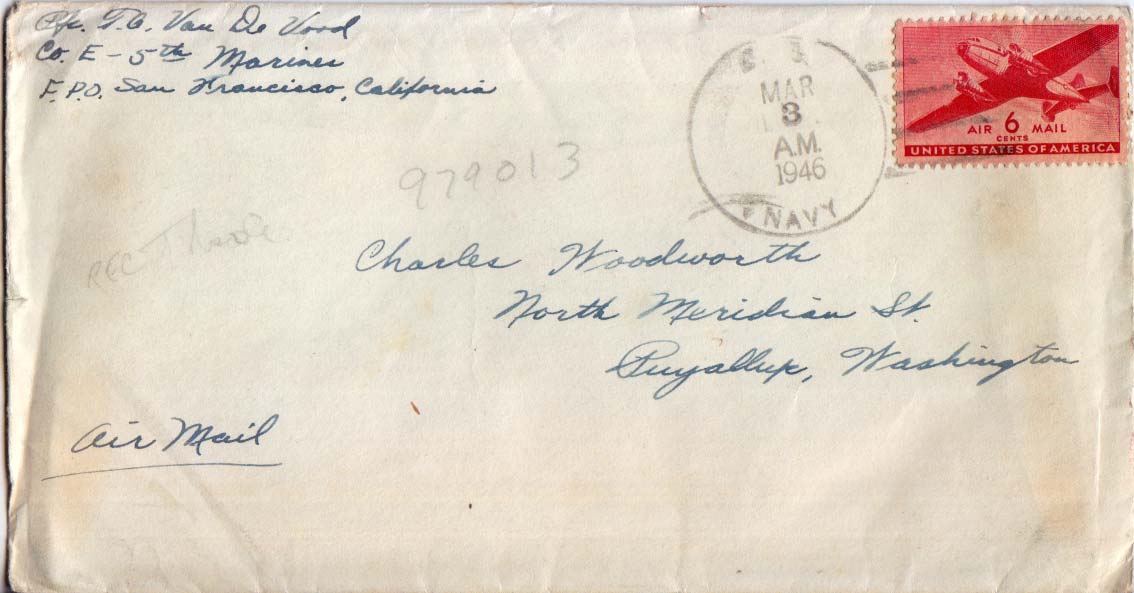 Pfc. T.C. Van De Vord
Co. E - 5th Marines
F.P.O. San Francisco, California
MAR
3
A.M.
1946
NAVY
AIR 6 MAIL
CENTS
UNITED STATES OF AMERICA
979013
REC
Charles Woodworth
North Meridian St.
Puyallup, Washington
Air Mail